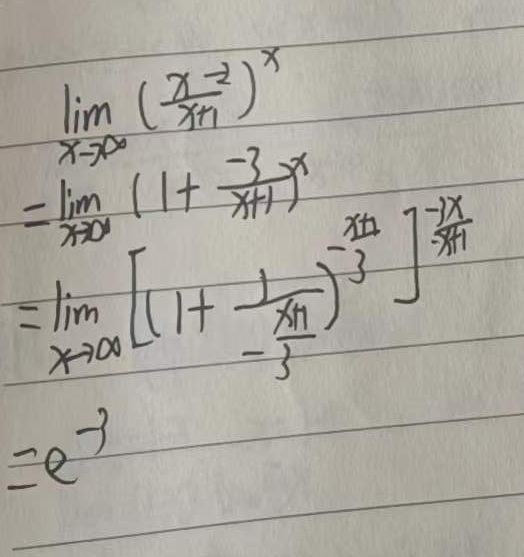 lim x→∞ ( (x-2)/(x+1) )^x
= lim x→∞ ( 1 + (-3)/(x+1) )^x
= lim x→∞ [ ( 1 + 1/(-(x+1)/3) )^(-(x+1)/3) ]^(-3x/(x+1))
= e^-3